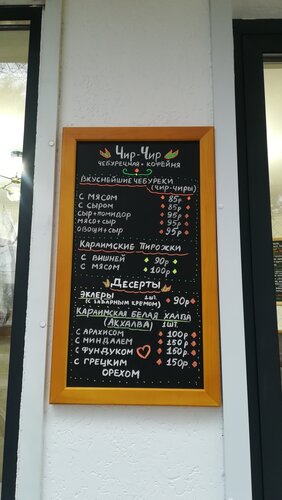 Чир-Чир
ЧЕБУРЕЧНАЯ • КОФЕЙНЯ
ВКУСНЕЙШИЕ ЧЕБУРЕКИ
(ЧИР-ЧИРЫ)
С МЯСОМ 85р
С СЫРОМ 85р
СЫР+ПОМИДОР 95р
МЯСО+СЫР 95р
ОВОЩИ+СЫР 95р
КАРАИМСКИЕ ПИРОЖКИ
С ВИШНЕЙ 90р
С МЯСОМ 100р
ДЕСЕРТЫ
ЭКЛЕРЫ 1шт. 90р
(С ЗАВАРНЫМ КРЕМОМ)
КАРАИМСКАЯ БЕЛАЯ ХАЛВА
(АКХАЛВА) 1ШТ.
С АРАХИСОМ 100р
С МИНДАЛЕМ 150р
С ФУНДУКОМ 150р
С ГРЕЦКИМ 150р
ОРЕХОМ